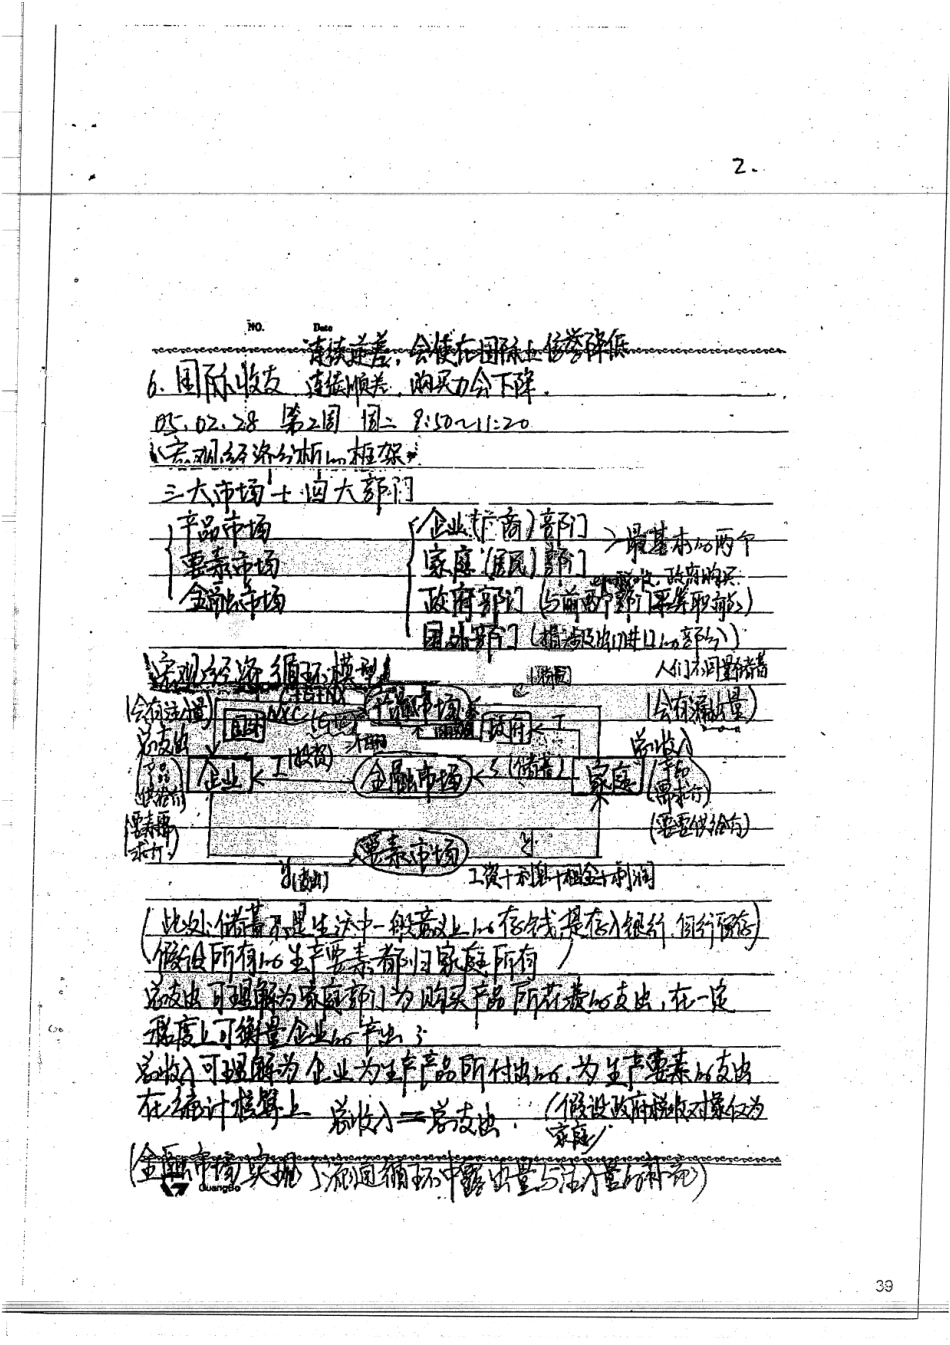 2.
NO. Date
连续逆差，会使在国际上信誉降低
6. 国际收支 连续顺差，购买力会下降．
05.02.28 第2周 周二 9:50~11:20
《宏观经济分析的框架》
三大市场＋四大部门
产品市场 企业（厂商）部门 >最基本的两个
要素市场 家庭（居民）部门
金融市场 政府部门（与前两个部门 政府购买
国外部门（指涉及出口进口的部分）
宏观经济循环模型 人们不同量储蓄
（会有注入量） 国外 产品市场 政府 T （会有漏出量）
总支出 I（投资） S（储蓄） 总收入
企业 金融市场 家庭
要素市场 y
y（支出） 工资＋利息＋租金＋利润
（此处储蓄不是生活中一般意义上的存钱是存入银行
假设所有的生产要素都归家庭所有）
总支出可理解为家庭部门为购买产品所花费的支出，在一定
程度上可衡量企业的产出；
总收入可理解为企业为生产产品所付出的，为生产要素的支出
在统计核算上 总收入＝总支出． （假设政府税收对象仅为
家庭）
（金融市场实现了流通循环中漏出量与注入量的补充）
GuangBo
39